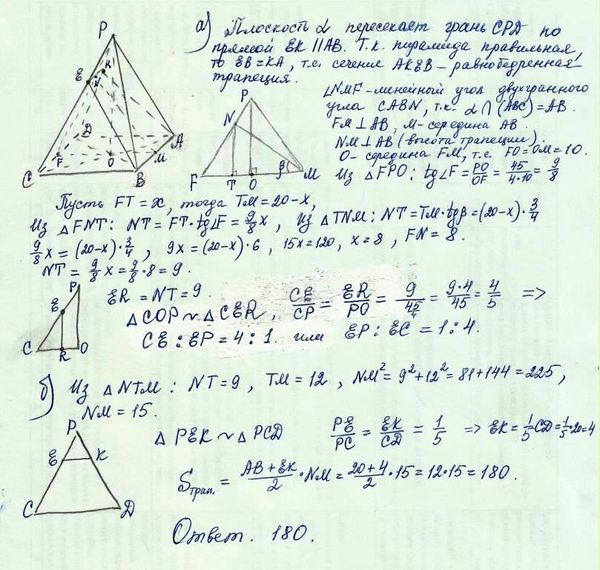 а) Плоскость α пересекает грань CPD по
прямой EK || AB. Т.к. пирамида правильная,
то EB = KA, т.е. сечение AKEB – равнобедренная
трапеция.
∠NMF – линейный угол двухгранного
угла CABN, т.к. α ∩ (ABC) = AB.
FM ⊥ AB, M – середина AB.
NM ⊥ AB (высота трапеции).
O – середина FM, т.е. FO = OM = 10.
Из △FPO: tg∠F = PO/OF = 45/4·10 = 9/8
P
E
K
N
D
A
F
O
M
C
B
P
N
F
T
O
β
M
Пусть FT = x, тогда TM = 20 – x,
Из △FNT: NT = FT · tg∠F = 9/8 x, Из △TNM: NT = TM · tgβ = (20-x) · 3/4
9/8 x = (20-x) · 3/4, 9x = (20-x) · 6, 15x = 120, x = 8, FN = 8.
NT = 9/8 x = 9/8 · 8 = 9.
P
E
C
R
O
ER = NT = 9.
△COP ~ △CER, CE/CP = ER/PO = 9/(45/4) = 9·4/45 = 4/5 =>
CE : EP = 4 : 1. или EP : EC = 1 : 4.
б) Из △NTM: NT = 9, TM = 12, NM² = 9² + 12² = 81 + 144 = 225,
NM = 15.
P
E
K
C
D
△PEK ~ △PCD PE/PC = EK/CD = 1/5 => EK = 1/5 CD = 1/5 · 20 = 4
Sтрап. = (AB + EK)/2 · NM = (20 + 4)/2 · 15 = 12 · 15 = 180.
Ответ. 180.